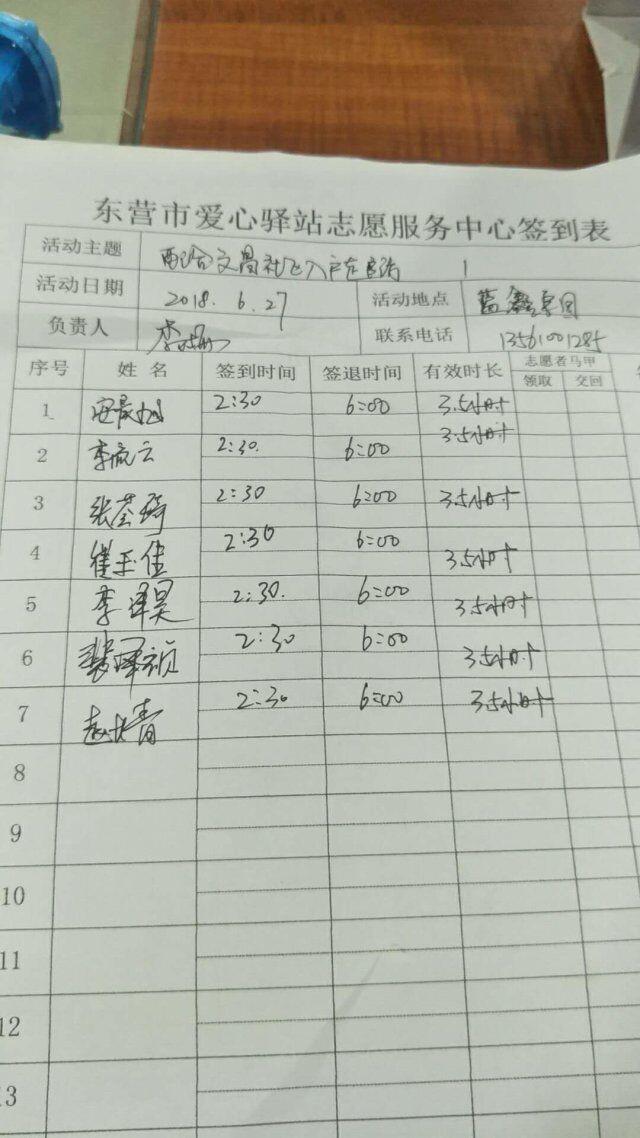 东营市爱心驿站志愿服务中心签到表
活动主题 配合文昌社区入户走民
活动日期 2018.6.27 活动地点 蓝鑫
负责人 李 联系电话 13561001285
序号 姓名 签到时间 签退时间 有效时长 志愿者马甲
领取 交回
1 2:30 6:00 3.5小时
2 李流云 2:30. 6:00 3.5小时
3 张荃琦 2:30 6:00 3.5小时
4 崔玉佳 2:30 6:00 3.5小时
5 李泽昊 2:30. 6:00 3.5小时
6 裴泽祯 2:30 6:00 3.5小时
7 赵长青 2:30 6:00 3.5小时
8
9
10
11
12
13